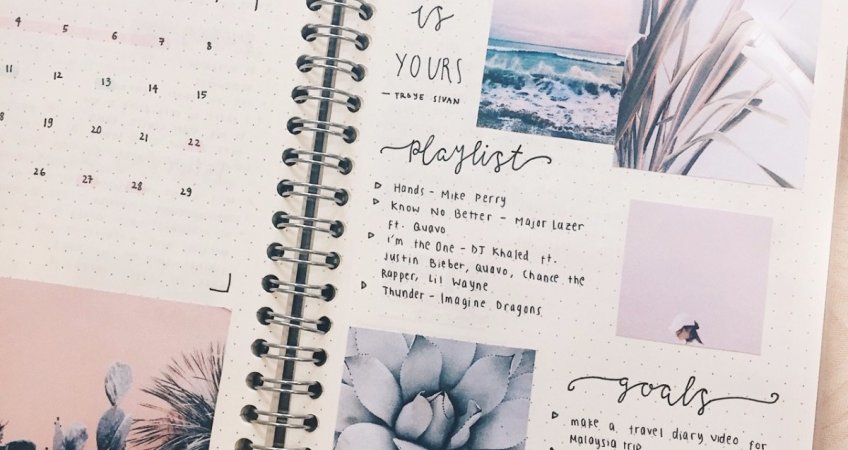 4 5 6 7 8
11 12 13 14 15
8 19 20 21 22
26 27 28 29
is
YOURS
— TROYE SIVAN
playlist
▷ Hands - Mike Perry
▷ Know No Better - Major Lazer
ft. Quavo
▷ i'm the One - DJ Khaled ft.
Justin Bieber, Quavo, Chance the
Rapper, Lil Wayne
▷ Thunder - Imagine Dragons
goals
▷ make a travel diary video for
Malaysia trip